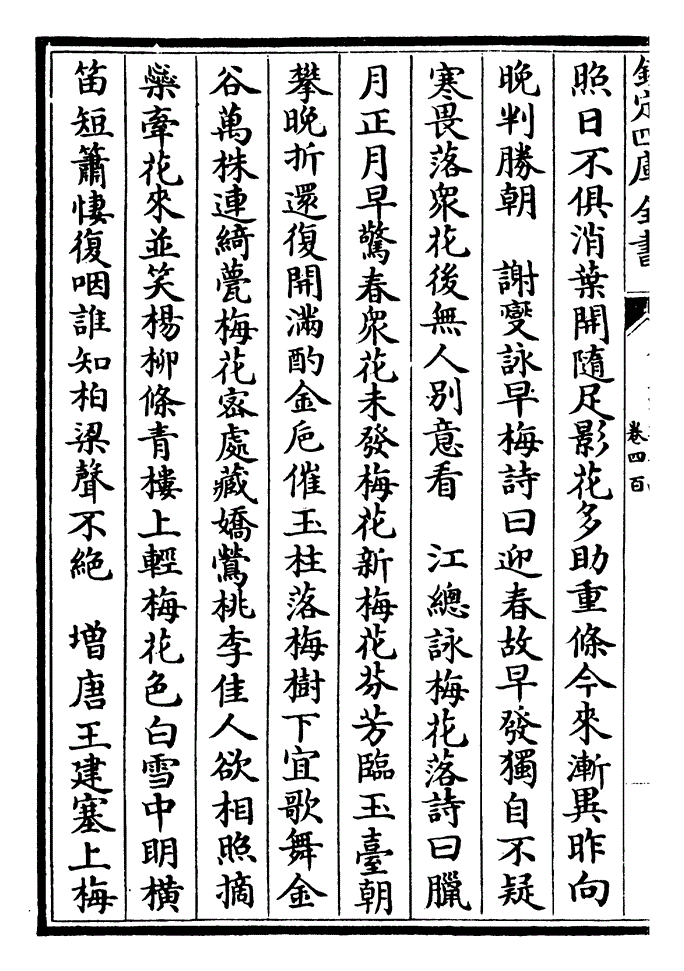 欽定四庫全書
卷四百
照日不俱消葉開隨足影花多助重條今來漸異昨向
晚判勝朝　謝燮詠早梅詩曰迎春故早發獨自不疑
寒畏落衆花後無人别意看　江總詠梅花落詩曰臘
月正月早驚春衆花未發梅花新梅花芬芳臨玉臺朝
攀晚折還復開滿酌金巵催玉柱落梅樹下宜歌舞金
谷萬株連綺甍梅花密處藏嬌鶯桃李佳人欲相照摘
蘂牽花來並笑楊柳條青樓上輕梅花色白雪中明橫
笛短簫悽復咽誰知柏梁聲不絶　増唐王建塞上梅